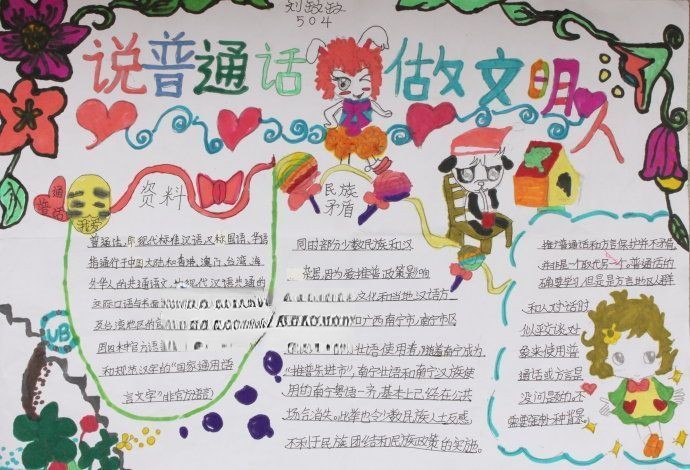 刘致致
504
说普通话 做文明人
普通话
我爱
资料
普通话，即现代标准汉语，又称国语、华语
指通行于中国大陆和香港、澳门、台湾、海
外华人的共通语文，
现代汉语共通的
UB
和规范汉字的"国家通用语
言文字"(非官方语言)
民族
矛盾
同时部分少数民族和汉
因为受推普政策影响
文化和当地汉语方
和广西南宁市，南宁市区
壮语使用者，随着南宁成为
"推普先进市"，南宁壮语和南宁汉族使
用的南宁粤语一齐，基本上已经在公共
场合消失。此举也令少数民族人士反感，
不利于民族团结和民族政策的实施。
推广普通话和方言保护并不矛盾，
并非是一个取代另一个。普通话的
确要学习，但是是方言地区人群
和人对话时
似乎交谈对
象来使用普
通话或方言是
没问题的，不
需要强制一种背景。